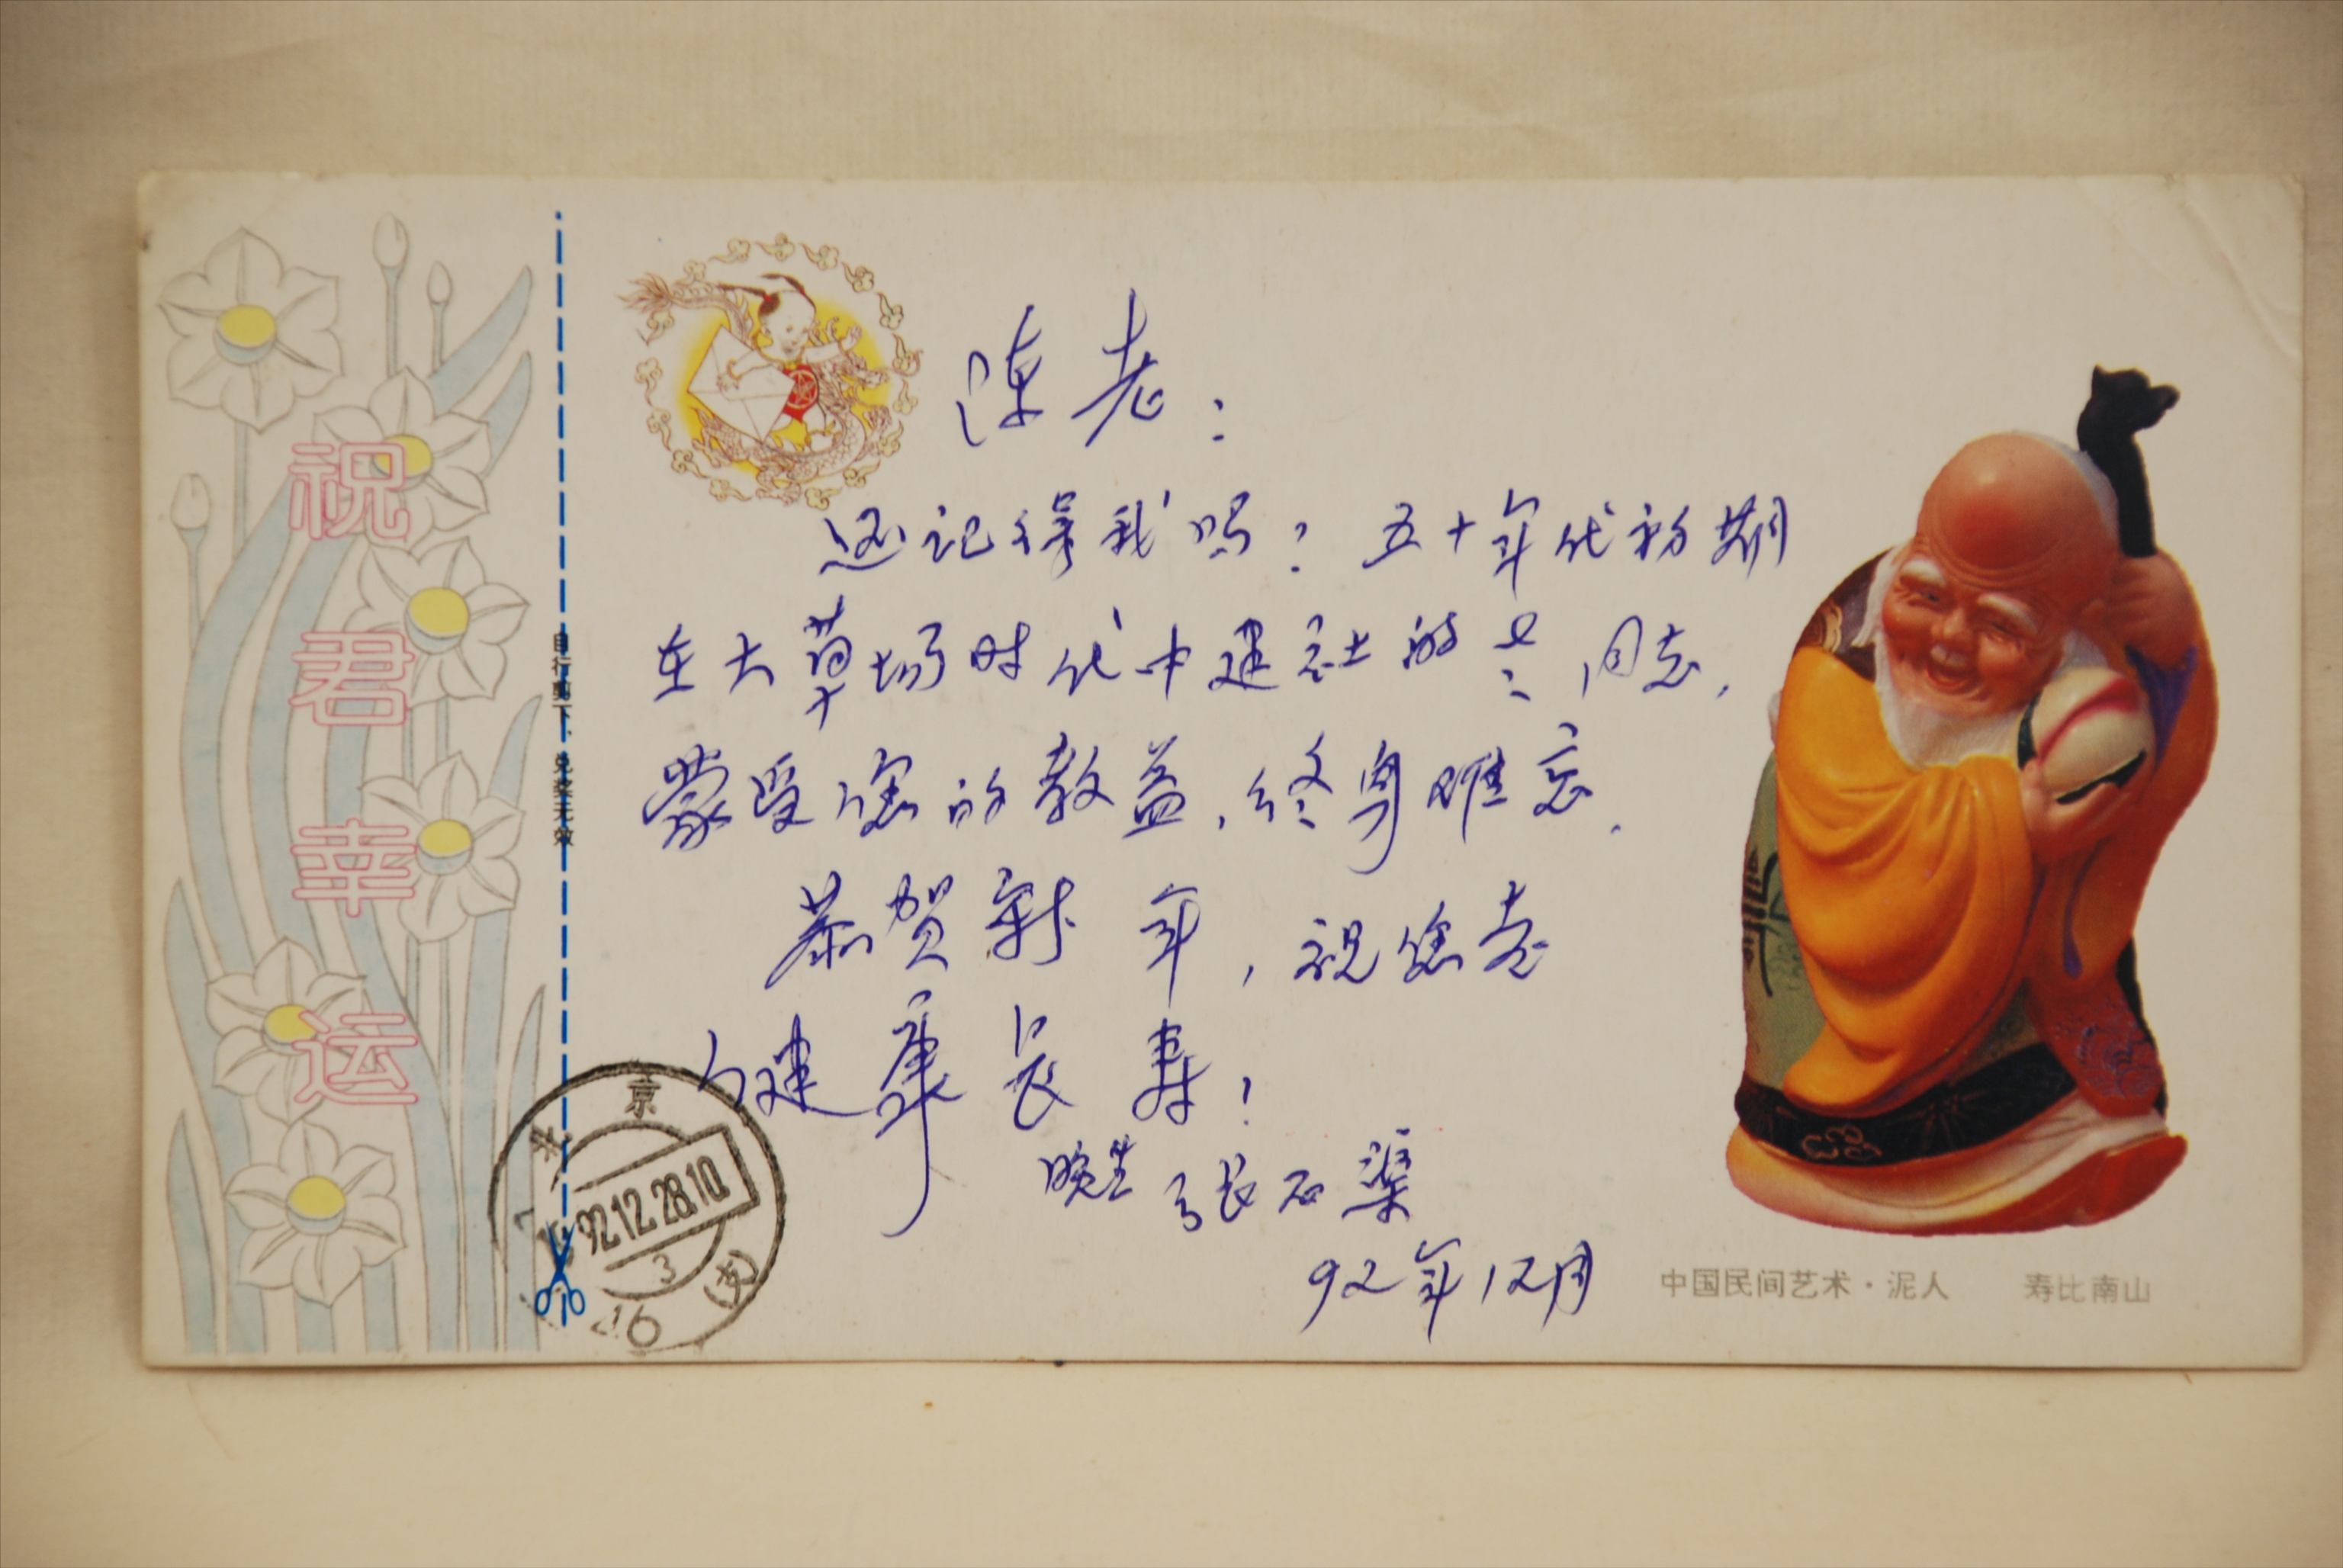 祝君幸运
自行剪下、兑奖无效
陈老：
还记得我吗？五十年代初期
在大草场时代中建社的老同志，
蒙受您的教益，终身难忘.
恭贺新年，祝您老
健康长寿！
晚生 张石渠
92年12月
北京
92.12.28.10
3
16
(支)
中国民间艺术·泥人 寿比南山